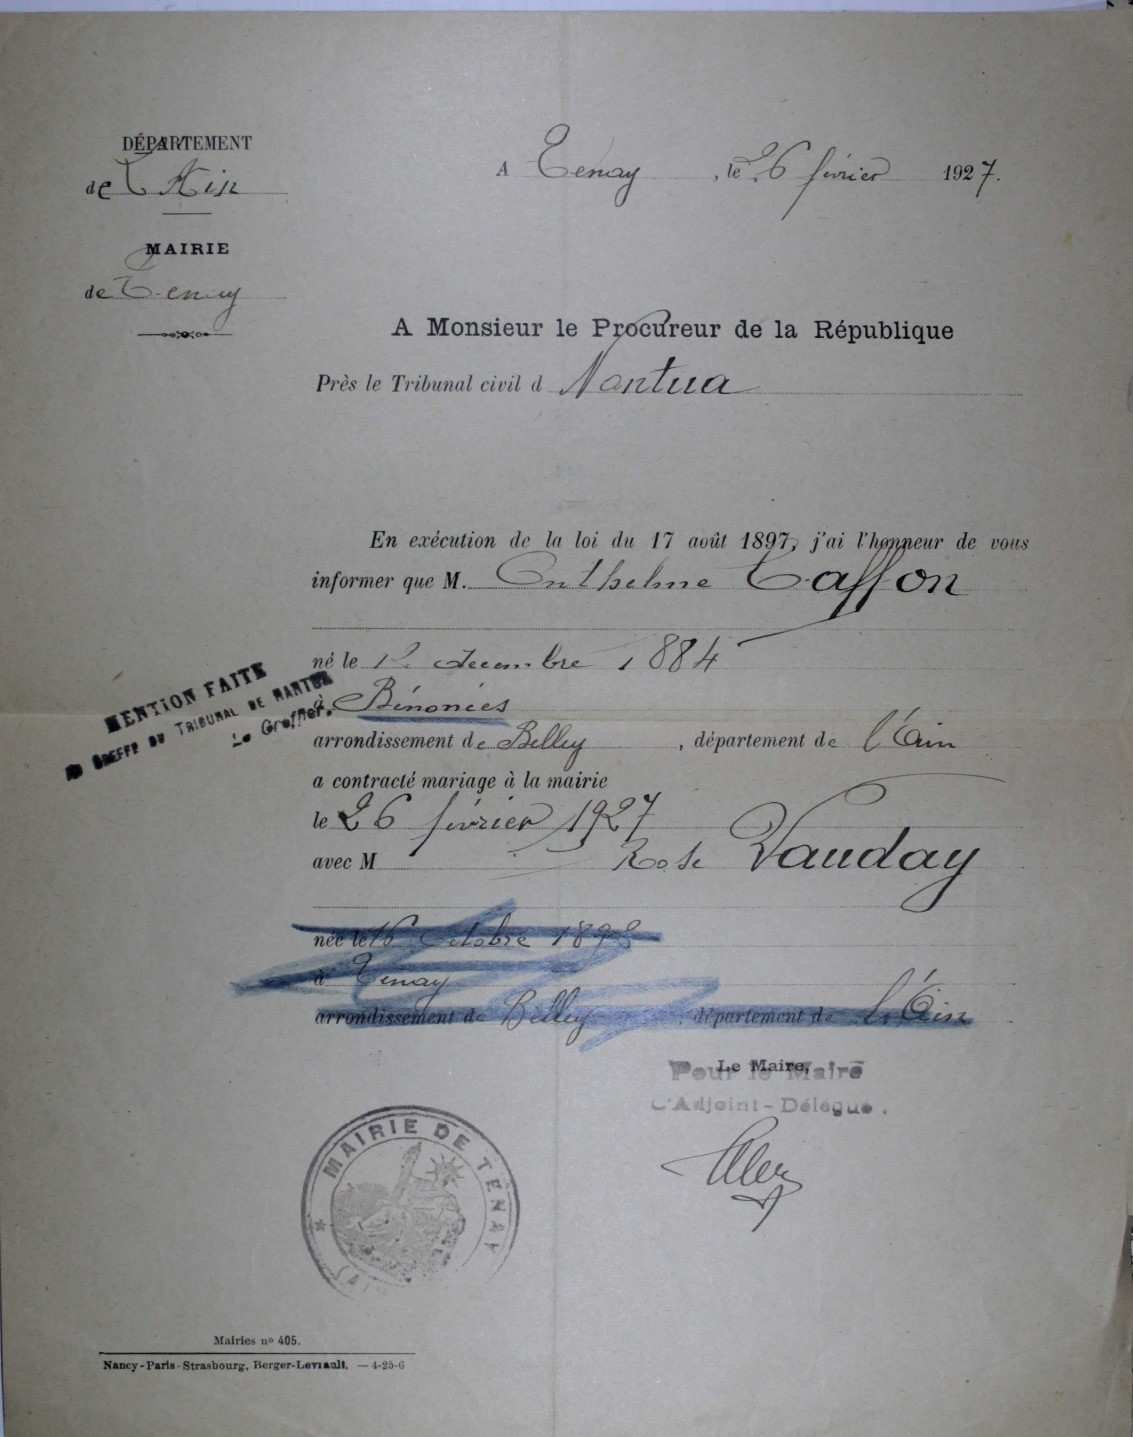 DÉPARTEMENT
de L'Ain
MAIRIE
de Tenay
A Tenay, le 26 février 1927.
A Monsieur le Procureur de la République
Près le Tribunal civil d Nantua
En exécution de la loi du 17 août 1897, j'ai l'honneur de vous
informer que M. Onthelme Taffon
né le 12 decembre 1884
à Bénonces
arrondissement de Belley, département de l'Ain
a contracté mariage à la mairie
le 26 février 1927
avec M Rose Vauday
née le 16 Octobre
à Tenay
arrondissement de Belley, département de l'Ain
MENTION FAITE
AU GREFFE DU TRIBUNAL DE NANTUA
Le Greffier.
Le Maire,
Pour le Maire
L'Adjoint-Délégué.
MAIRIE DE TENAY
Mairies nº 405.
Nancy-Paris-Strasbourg, Berger-Levrault. — 4-25-6